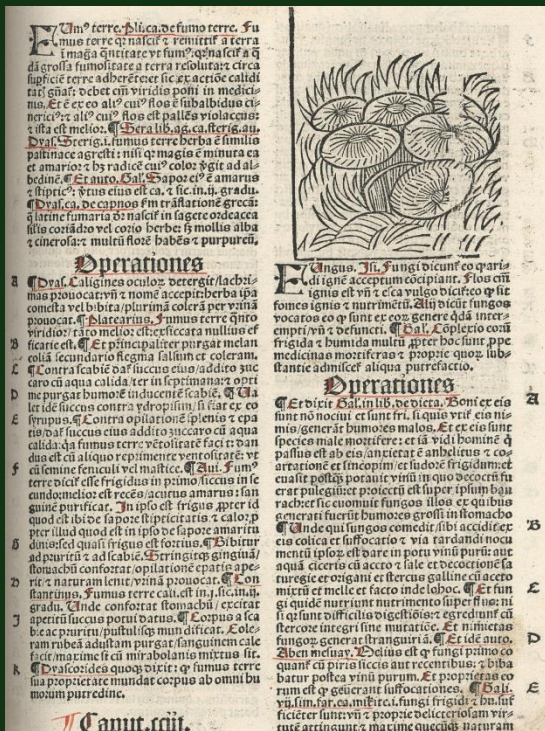 FUmꝰ terre. Pli. ca. de fumo terre. Fu
mus terre qꝛ nascit̃ ⁊ remittit̃ a terra
i mag̃a q̃ntitate vt fumꝰ: q̃ nascit̃ a q̃
dã grossa fumositate a terra resoluta: ⁊ circa
supficiẽ terre adherẽte: et sic ex actiõe calidi
tatꝭ
debet eñi viridis poni in medici
nis. Et ẽ ex eo aliꝰ cuiꝰ flos ẽ subalbidus ci-
nericiꝰ: ⁊ aliꝰ cuiꝰ flos est pallẽs violaceus:
⁊ ista est melior. ¶ Sera. lib. ag. ca. sterig. au.
Dyas. Sterig. i. fumus terre herba ẽ similis
pastinace agresti: nisi qꝛ magis ẽ minuta ea
et amarior: ⁊ hꝫ radicẽ cuiꝰ color ꝟgit ad al-
bedinẽ. ¶ Et auto. Gal. Sapor eiꝰ ẽ amarus
⁊ stipticꝰ: ꝟtus eius est ca. ⁊ sic. in. ij. gradu.
¶ Dyas. ca. de capnos fm trãslationẽ grecã:
q̃ latine fumaria dr̃ nascit̃ in sagete ordeacea
silis coriãdro vel corio herbe: sꝫ mollis alba
⁊ cinerosa: ⁊ multũ florẽ habẽs ⁊ purpureũ.
Operationes
A ¶ Dyas. Caligines oculoꝝ detergit/lachri-
mas prouocat: vñ ⁊ nomẽ accepit: herba ipa
comesta vel bibita/plurimã colerã per vrinã
prouocat. ¶ Platearius. Fumus terre q̃nto
viridior/tãto melior est: exsiccata nullius ef
B ficatie est. ¶ Et principaliter purgat melan
coliã secundario flegma salsum et coleram.
C ¶ Contra scabiẽ daf succus eius/addito zuc
caro cũ aqua calida/ter in septimana: ⁊ opti
D me purgat humorẽ inducentẽ scabiẽ. ¶ Va
let idẽ succus contra ydropisim/si fiat ex eo
E syrupus. ¶ Contra opilationẽ splenis ⁊ epa
tis/daf succus eius addito zuccaro cũ aqua
calida: qꝛ fumus terre vẽtositatẽ facit: dan
dus est cũ aliquo reprimente ventositatẽ: vt
F cũ semine feniculi vel mastice. ¶ Aui. Fumꝰ
terre dicit esse frigidus in primo/siccus in se
cundo: melior est recẽs/acutus amarus: san
guinẽ purificat. In ipso est frigus ꝓpter id
quod est ibi de sapore stipticitatis ⁊ calor. ꝓ
pter illud quod est in ipso de sapore amaritu
G dinis: sed quasi frigus est fortius. ¶ Bibitur
ad pruritũ ⁊ ad scabiẽ. Stringitqꝫ gingiuã/
stomachũ confortat/opilationẽ epatis ape-
H rit: ⁊ naturam lenit/vrinã prouocat. ¶ Con
stantinus. Fumus terre cali. est in. j. sic. in. ij.
gradu. Unde confortat stomachũ/excitat
J apetitũ succus potui datus. ¶ Corpus a sca
bie ac pruritu/pustulisqꝫ mundificat. Cole-
ram rubeã adustam purgat/sanguinem cale
facit/maxime si cũ mirabolanis mixtus sit.
K ¶ Dyascorides quoqꝫ dixit: ꝙ fumus terre
sua proprietate mundat corpus ab omni hu
morum putredine.
¶ Caput. cciij.
FUngus. Isi. Fungi dicunt̃ eo ꝙ ari-
di ignẽ acceptum cõcipiant. Flos eñi
ignis est vñ ⁊ esca vulgo dicit̃: eo ꝙ sit
fomes ignis ⁊ nutrimẽtũ. Alij dicũt fungos
vocatos eo ꝙ sunt ex eoꝝ genere q̃dã inter-
empti/vñ ⁊ defuncti. ¶ Gal. Cõplexio eorũ
frigida ⁊ humida multũ ꝓpter hoc sunt ꝓpe
medicinas mortiferas ⁊ proprie quoꝝ sub-
stantie admiscet̃ aliqua putrefactio.
Operationes
A ¶ Et dixit Gal. in lib. de dieta. Boni ex eis
sunt nõ nociui et sunt fri. si quis vtit̃ eis ni-
mis/generãt humores malos. Et ex eis sunt
species male mortifere: et iã vidi hominẽ q̃
passus est ab eis/anxietatẽ anhelitus ⁊ co-
artationẽ et sincopim/et sudorẽ frigidum: et
euasit postqꝫ potauit vinũ in quo decoctũ fu
erat pulegiũ: et proiectũ est super ipsum bau
rach: et sic euomuit fungos illos ex quibus
generati fuerũt humores grossi in stomacho
B ¶ Unde qui fungos comedit/sibi accidit ex
eis colica et suffocatio ⁊ via tardandi nocu
mentũ ipsoꝝ est dare in potu vinũ purũ: aut
aquã ciceris cũ aceto ⁊ sale et decoctionẽ sa
turegie et origani et stercus galline cũ aceto
C mixtũ et melle et facto inde lohoc. ¶ Et fun
gi quidẽ nutriunt nutrimento superfluo: ni
si qꝛ sunt difficilis digestiõis: et egrediunt̃ cũ
stercore integri sine mutatiõe. Et nimietas
D fungoꝝ generat stranguriã. ¶ Et idẽ auto.
Aben mesuay. Melius est ꝙ fungi primo co
quant̃ cũ piris siccis aut recentibus: ⁊ biba
batur postea vinũ purum. Et proprietas eo
E rum est ꝙ generant suffocationes. ¶ Gali.
vij. sim. far. ca. mikite. i. fungi frigidi ⁊ hu. suf
ficiẽter sunt: vñ ⁊ proprie delicteriosam vir-
tutẽ attingunt: ⁊ maxime quecũqꝫ naturam